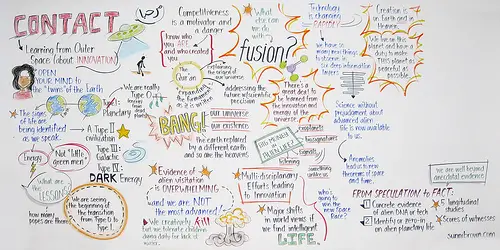 CONTACT
Learning from Outer
Space (about INNOVATION)
OPEN
YOUR MIND to
the "twins" of the Earth
The signs
of life are
being identified
as we speak.
Energy
Not "little
green men"
What are
the LESSONS?
how many
popes are there?
We are really
Type 0:
Planetary
A Type II
civilization
Type III:
Galactic
Type IV:
DARK Energy
We are seeing
the beginning of
the transition
from Type 0 to
Type I
Competitiveness
is a motivator and
a danger
Know who
you ARE
and who created
you
The
Qur'an
exploring
the origin of
the universe
expanding
the formation
as it is written
BANG!
our universe
our existence
the earth replaced
by a different earth
and so are the heavens
Evidence of
alien visitation
is OVERWHELMING
and we are NOT
the most advanced!
We creatively kill
but we tolerate children
dying daily for lack of
water.
What
else can
we do
with
fusion?
addressing the
future w/scientific
precision
There's a
great deal to
be learned from the
innovation energy of
the universe.
Multi-disciplinary
Efforts leading
to Innovation
Major shifts
in world views if
we find intelligent
LIFE.
Technology
is changing
RAPIDLY
we have
so many new things
to discover in
the deep information
layers
Science without
prejudgment about
advanced alien
life is now available
to us.
Anomalies
lead us to new
theorems of space
and time.
who's
going to
win the
new space
race?
Creation is
on Earth and in
Heaven
We live on this
planet and have a
duty to make
THIS planet as
peaceful as
possible.
we are well beyond
anecdotal evidence
FROM SPECULATION to FACT:
1 Concrete evidence
of alien DNA or tech
2 Identity or zero-in
on an alien planet
5 longitudinal
studies
Scores of witnesses
sunnibrown.com